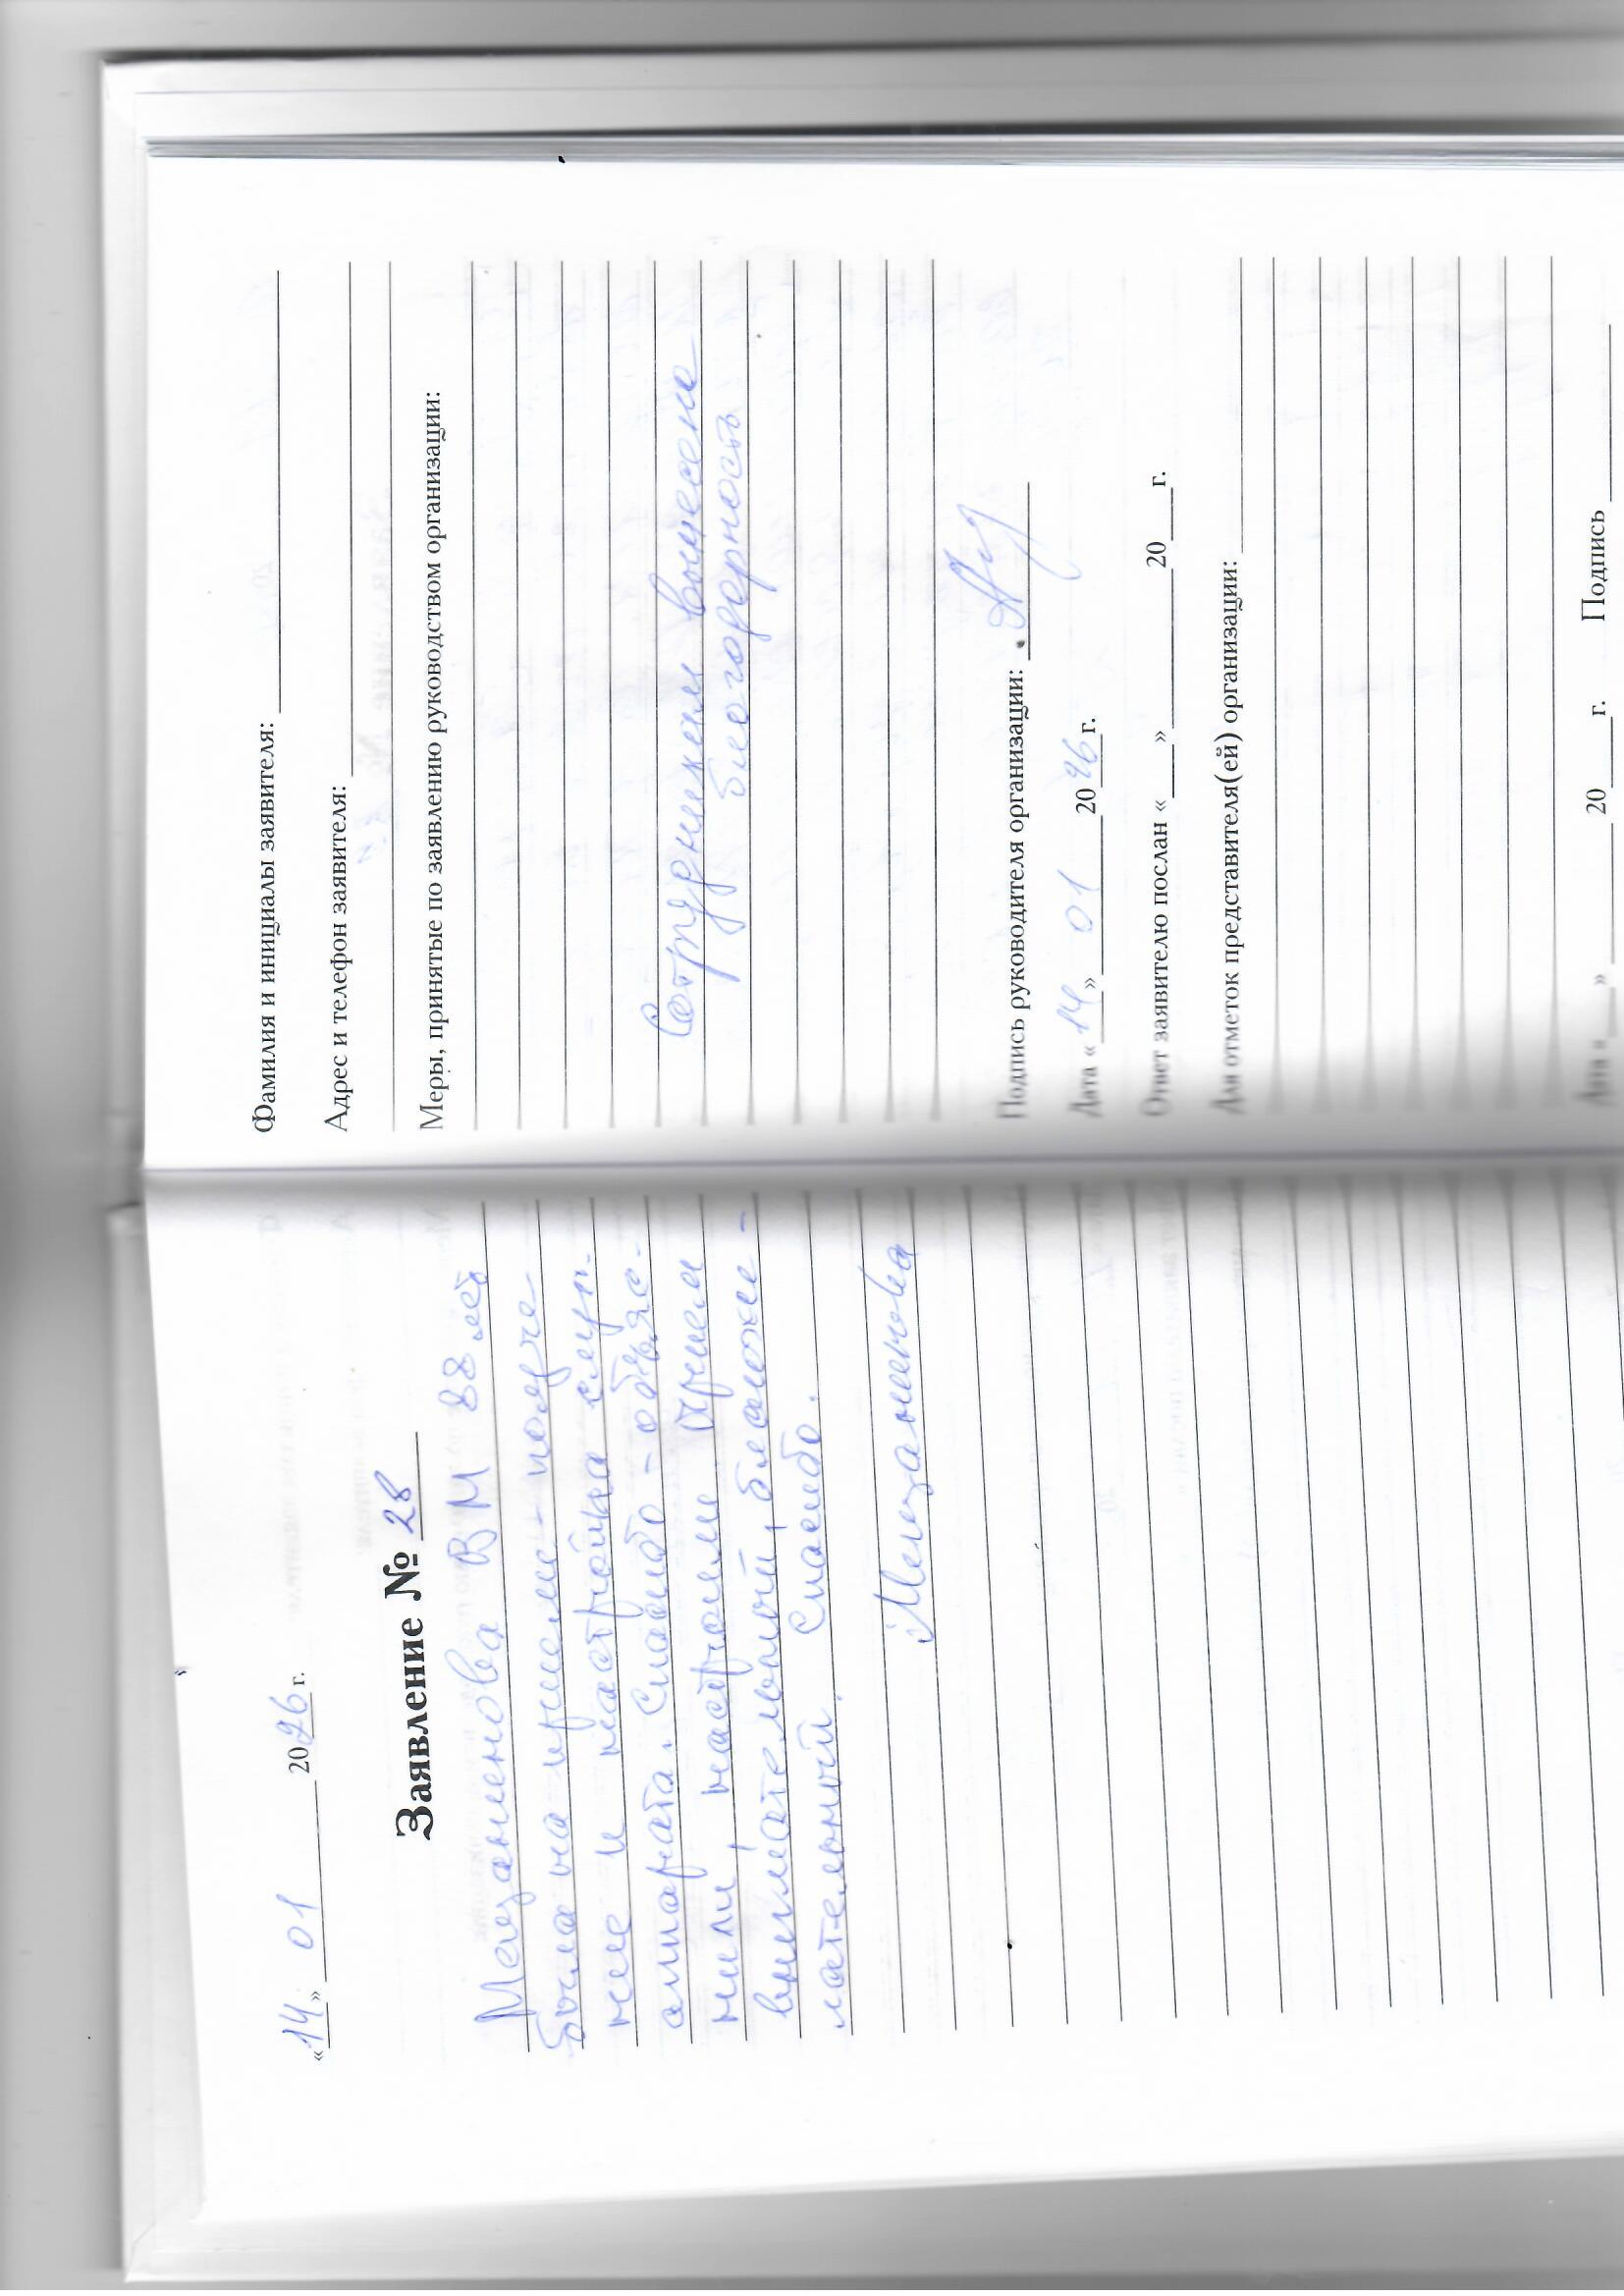 «14» 01 2026 г.
Заявление № 28
В М 88 лет
Была на приеме - получе
ние и настройка слуп.
аппарата. Спасибо - объяс-
нили, настроили Прием
внимательный, благоже-
лательный. Спасибо.
Фамилия и инициалы заявителя:
Адрес и телефон заявителя:
Меры, принятые по заявлению руководством организации:
Сотрудникам вынесена
благодарность
Подпись руководителя организации:
Дата «14» 01 2026 г.
Ответ заявителю послан «___» ______ 20___ г.
Для отметок представителя(ей) организации:
Дата «___» ______ 20___ г. Подпись